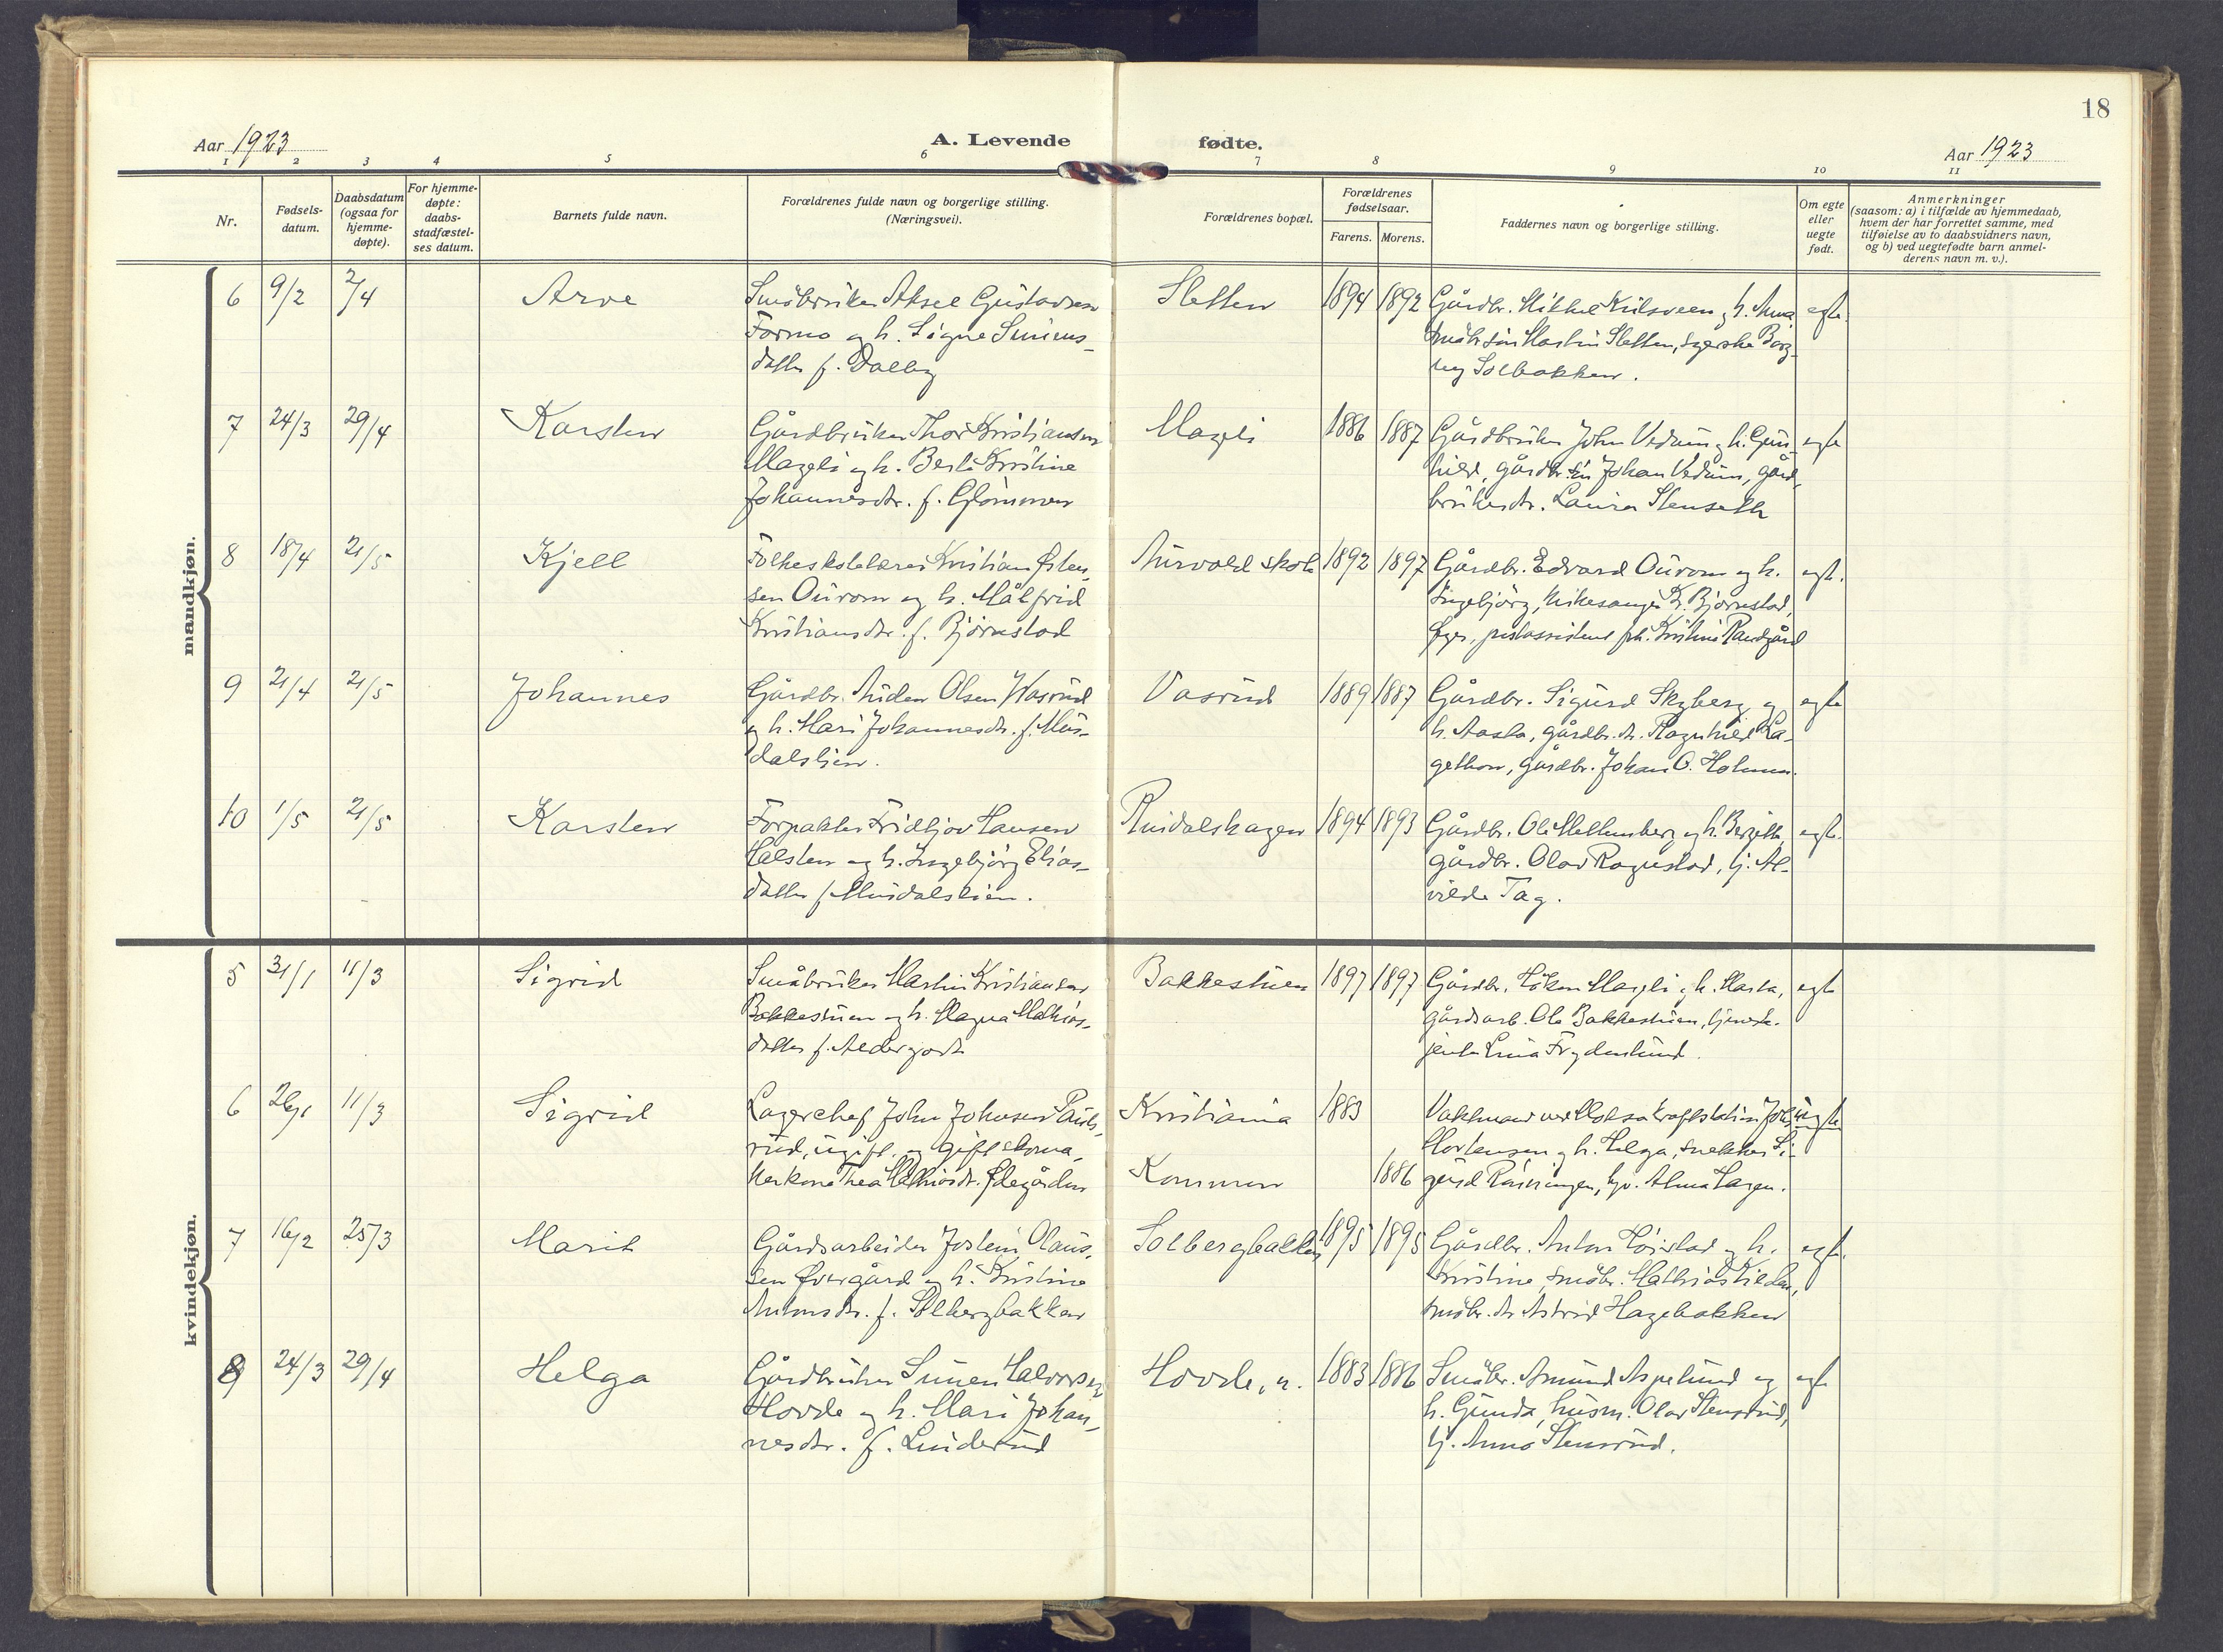 18
Aar 1923
A. Levende fødte.
Aar 1923
1 2 3 4 5 6 7 8 9 10 11
Nr.
Fødsels-
datum.
Daabsdatum
(ogsaa for
hjemme-
døpte).
For hjemme-
døpte:
daabs-
stadfæstel-
ses datum.
Barnets fulde navn.
Forældrenes fulde navn og borgerlige stilling.
(Næringsvei).
Forældrenes bopæl.
Forældrenes
fødselsaar.
Farens. Morens.
Faddernes navn og borgerlige stilling.
Om egte
eller
uegte
født.
Anmerkninger
(saasom: a) i tilfælde av hjemmedaab,
hvem der har forrettet samme, med
tilføielse av to daabsvidners navn,
og b) ved uegtefødte barn anmel-
derens navn m. v.).
mandkjøn.
6 9/2 2/4 Arve
Småbruker Aksel Gustavsen
Formo og h. Signe Simens-
datter f. Dalby
Sletten 1894 1892
Gårdbr. Mikkel og h. Anna
Martin Sletten, syerske Borg-
ny Solbakken.
egte.
7 24/3 29/4 Karsten
Gårdbruker Thor Kristiansen
Mageli og h. Berte Kristine
Johannesdtr. f. Glommen
Mageli 1886 1887
Gårdbruker John Vedum og h. Gun-
hild, gårdbr. sön Johan Vedum, gård-
brukerdtr. Laura Stenseth
egte
8 18/4 21/5 Kjell
Folkeskolelærer Kristian Østen-
sen Ourom og h. Målfrid
Kristiansdtr. f. Björnstad
Aurvold skole 1892 1897
Gårdbr. Edvard Ourom og h.
Ingebjörg, kirkesanger K. Björnstad,
Øyer, postassistent frk. Kristine Randgård
egte.
9 21/4 21/5 Johannes
Gårdbr. Auden Olsen Wasrud
og h. Mari Johannesdtr. f. Mus-
dalslien.
Vasrud 1889 1887
Gårdbr. Sigurd Skyberg og
h. Aasta, gårdbr. dt. Ragnhild La-
gethon, gårdbr. Johan O. Holmen.
egte
10 1/5 21/5 Karsten
Forpakter Fridtjov Hansen
Halsten og h. Ingebjörg Elias-
datter f. Musdalslien.
1894 1893
Gårdbr. Ole Mellemberg og h. Bergitte,
gårdbr. Olav Rognstad, tj. Al-
vilde Tag.
egte.
kvindekjøn.
5 31/1 11/3 Sigrid
Småbruker Martin Kristiansen
Bakkestuen og h. Magna Mathias-
datter f.
Bakkestuen 1897 1897
Gårdbr. Håkon Mageli og h. Marta,
gårdsarb. Ole Bakkestuen, tjeneste-
jente Lina Frydenlund.
egte
6 26/1 11/3 Sigrid
Lagerchef John Johnsen Pauls-
rud, ugift, og gift skoma-
kerkone Thea Mathiasdtr. Ødegården
Kristiania 1883
Kommen 1886
Vaktmand ved kraftstation Johs.
Mortensen og h. Helga, snekker Si-
gurd, hjv. Alma Hagen.
uegte
7 16/2 25/3 Marit
Gårdsarbeider Jostein Olaus-
sen Övergård og h. Kristine
Antonsdtr. f. Solbergbakken
Solbergbakken 1895 1895
Gårdbr. Anton Höistad og h.
Kristine, småbr. Mathias Kilden,
småbr. dtr Astrid Hagebakken
egte.
8 24/3 29/4 Helga
Gårdbruker Simen Halvorsen
Hovde og h. Mari Johan-
nesdtr. f. Linderud
Hovde, n. 1883 1886
Småbr. Amund Aspelund og
h. Gunda, husm. Olav Stensrud,
tj. Anna Stensrud.
egte